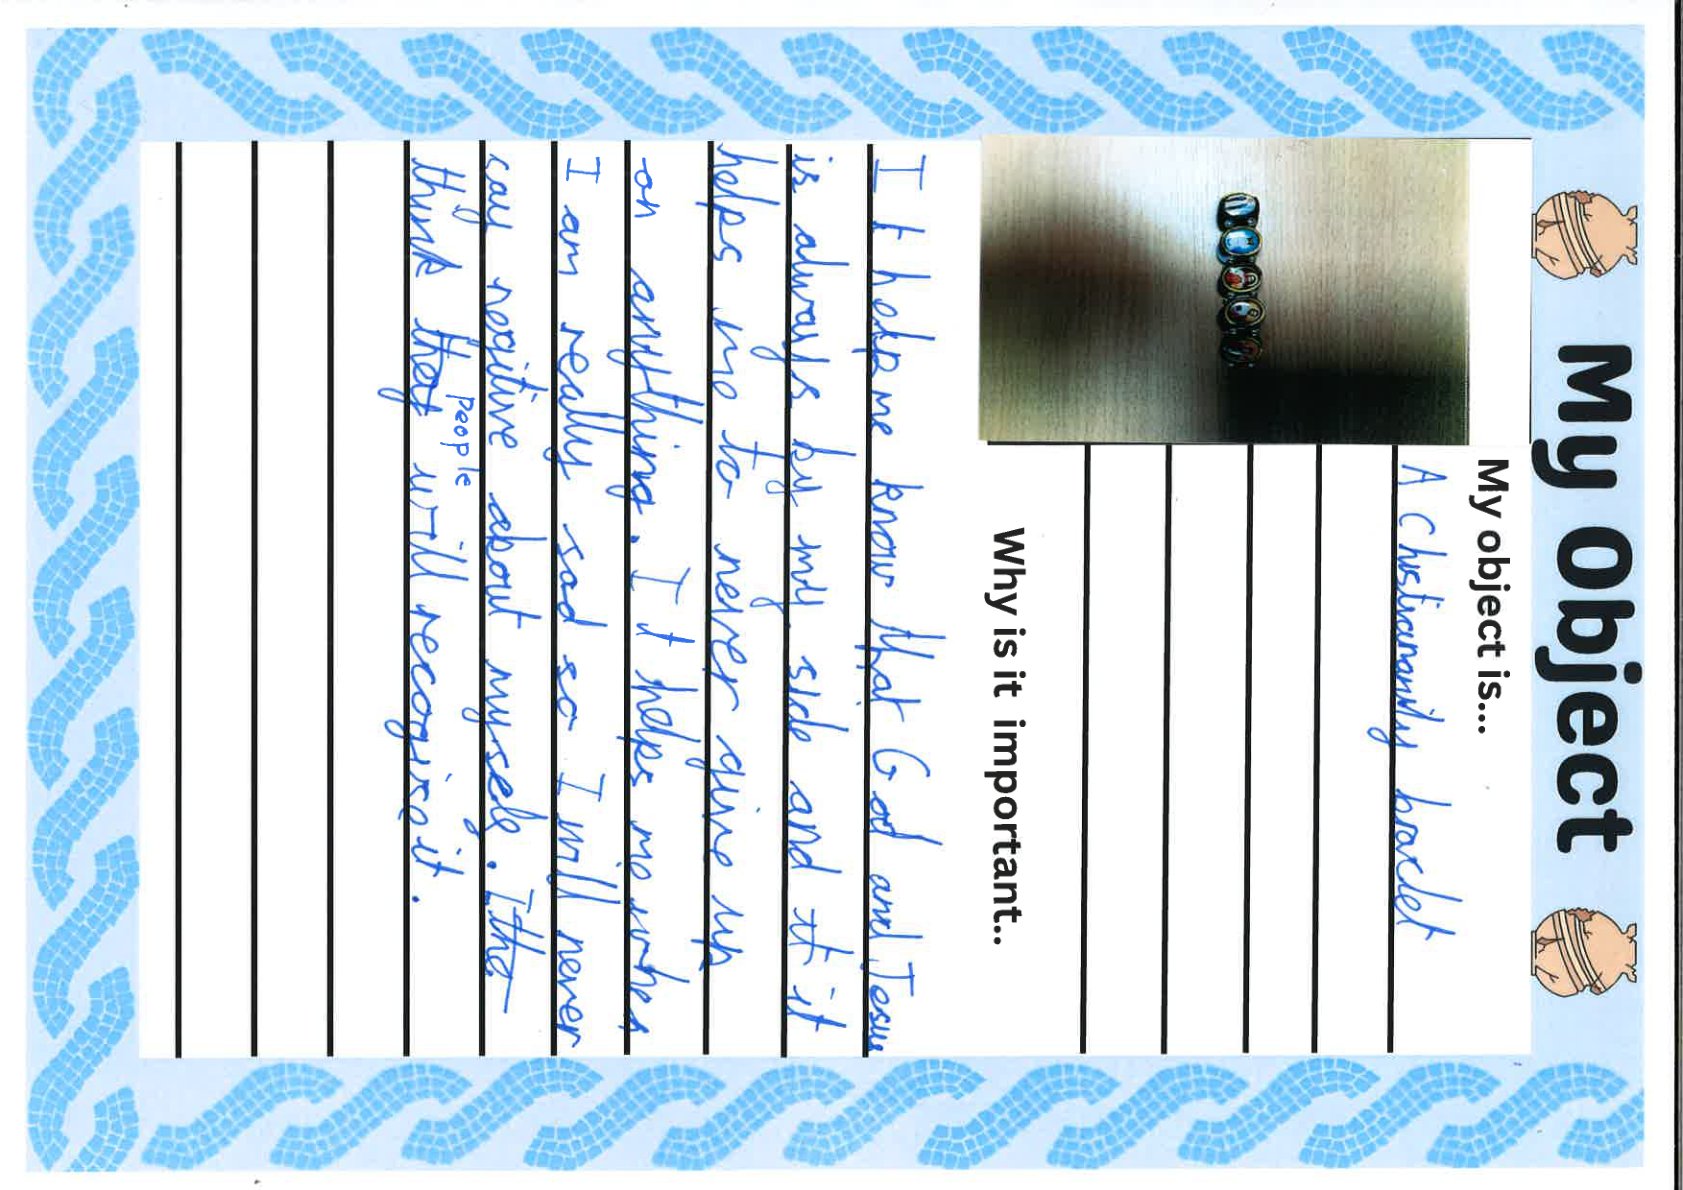 My Object
My object is...
A Chistiananity braclet
Why is it important..
It help me know that God and Jesus
is always by my side and it it
helps me to never give up
on anything. It helps me when
I am really sad so I will never
say negitive about myself. I the
people
think they will recogise it.